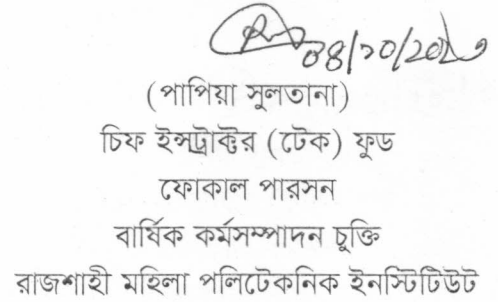 ০৪/১০/২০২৩
(পাপিয়া সুলতানা)
চিফ ইন্সট্রাক্টর (টেক) ফুড
ফোকাল পারসন
বার্ষিক কর্মসম্পাদন চুক্তি
রাজশাহী মহিলা পলিটেকনিক ইনস্টিটিউট